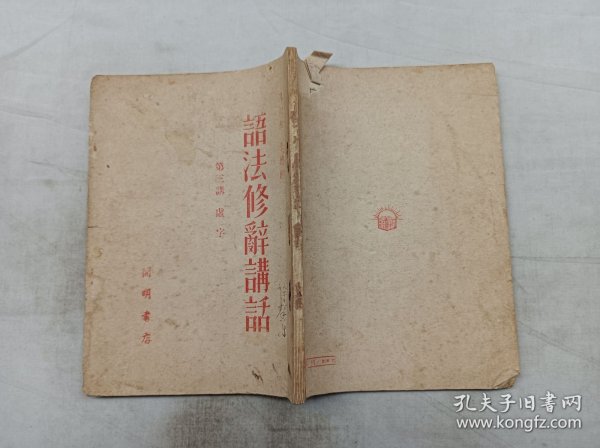 語法修辭講話
第三講 虛字
開明書店
孔夫子旧书网
www.kongfz.com